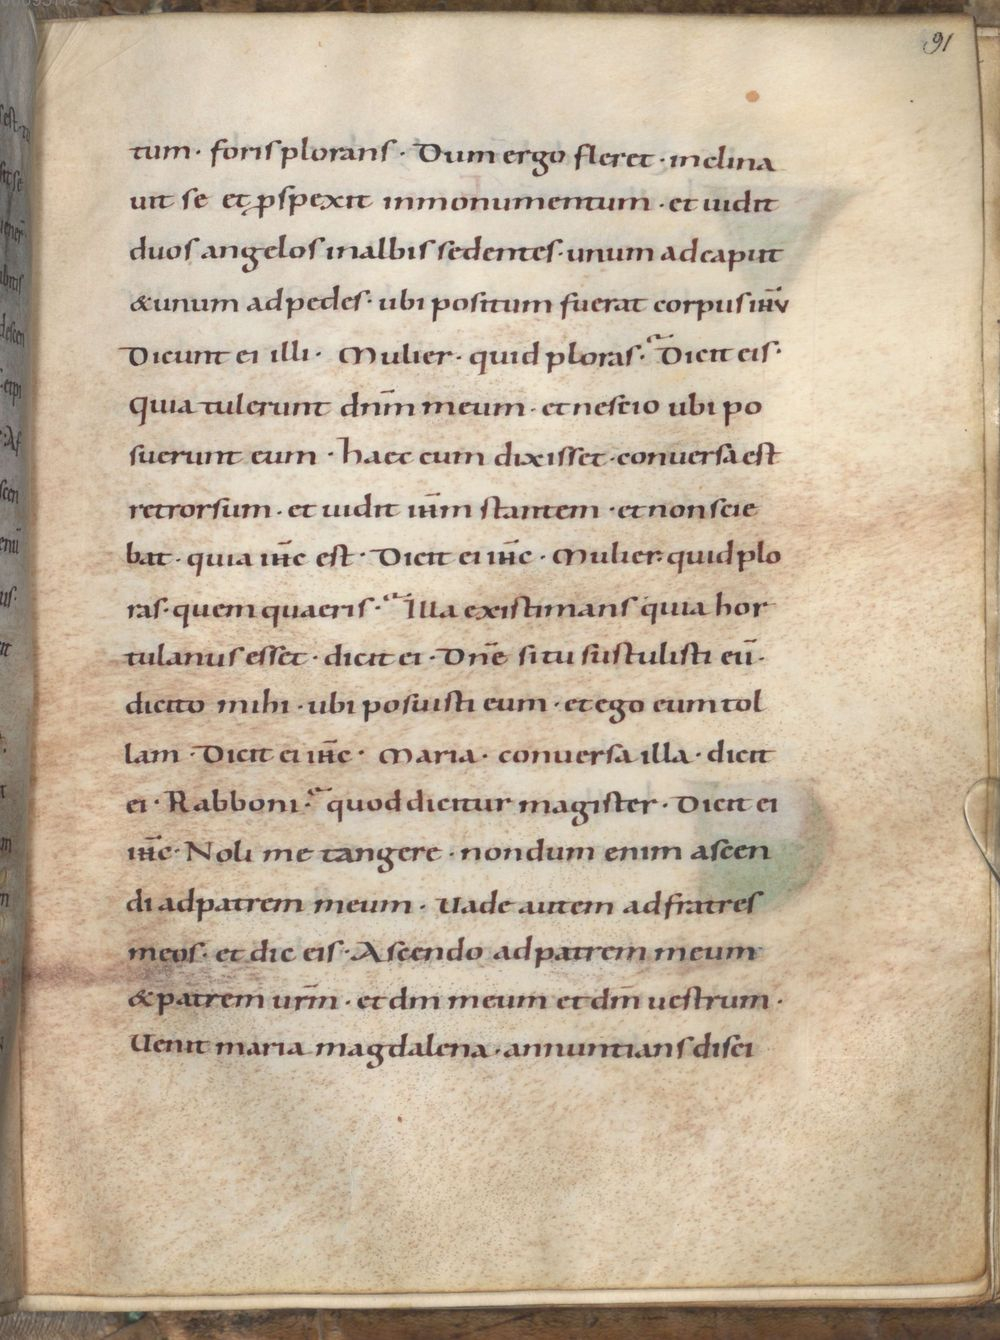 91
tum · foris plorans · Dum ergo fleret · inclina
uit se et ꝑspexit inmonumentum · et uidit
duos angelos inalbis sedentes · unum adcaput
& unum adpedes · ubi positum fuerat corpus ih̅u
Dicunt ei illi · Mulier · quid ploras · Dicit eis ·
Quia tulerunt dn̅m meum · et nescio ubi po
suerunt eum · haec cum dixisset · conuersa est
retrorsum · et uidit ih̅m stantem · et non scie
bat · quia ih̅c est · Dicit ei ih̅c · Mulier · quid plo
ras · quem quaeris · Illa existimans quia hor
tulanus esset · dicit ei · Dn̅e si tu sustulisti eu̅ ·
dicito mihi · ubi posuisti eum · et ego eum tol
lam · Dicit ei ih̅c · Maria · conuersa illa · dicit
ei · Rabboni · quod dicitur magister · Dicit ei
ih̅c · Noli me tangere · nondum enim ascen
di adpatrem meum · Uade autem adfratres
meos · et dic eis · Ascendo adpatrem meum
& patrem ur̅m · et dm̅ meum et dm̅ uestrum ·
Uenit maria magdalena · annuntians disci